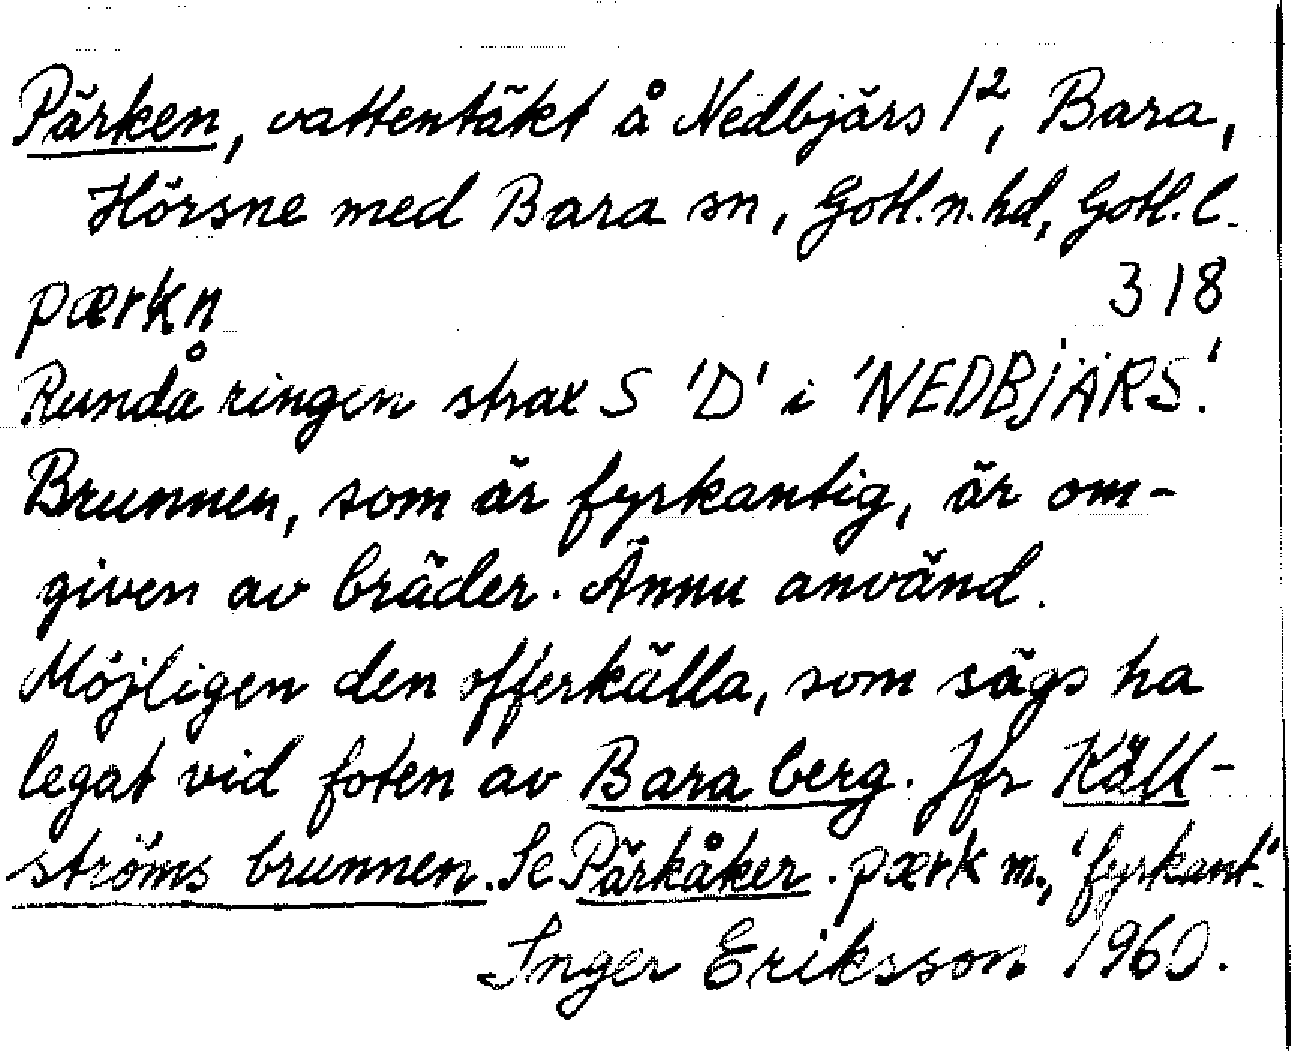 Pärken, vattentäkt å Nedbjärs 1², Bara,
Hörsne med Bara sn, Gotl. n. hd, Gotl. l.
pærkn̥ 318
Runda ringen strax S 'D' i 'NEDBJÄRS'.
Brunnen, som är fyrkantig, är om-
given av bräder. Ännu använd.
Möjligen den offerkälla, som sägs ha
legat vid foten av Bara berg. Jfr Käll-
ströms brunnen. Se Pärkåker. pærk m., 'fyrkant'.
Inger Eriksson 1960.